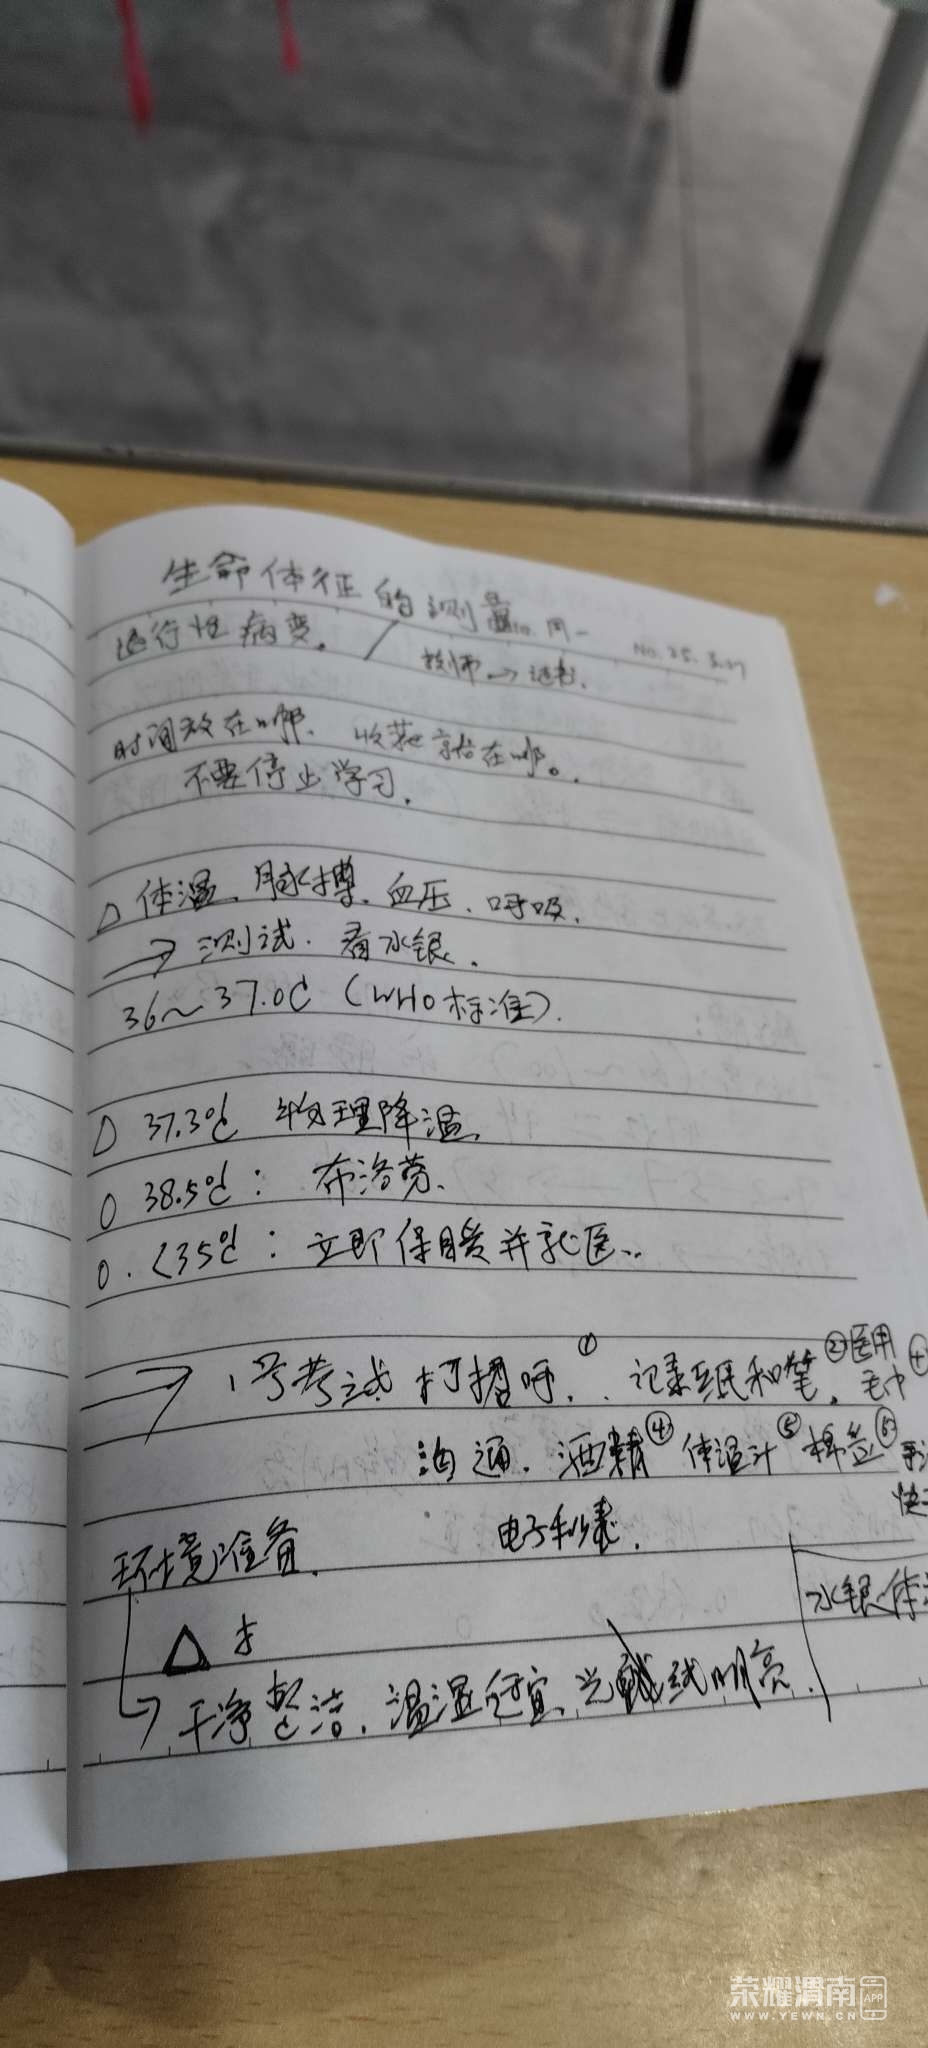 生命体征的测量 周一
退行性病变。 / 技师→证书.
No. 25. 3.17
时间放在哪、收获就在哪。
不要停止学习.
△ 体温、脉搏、血压、呼吸.
→ 测试.看水银.
36~37.0℃(WHO标准).
△ 37.3℃ 物理降温.
○ 38.5℃: 布洛芬.
○.<35℃:立即保暖并就医..
→ 1号考试 打招呼.① 记录纸和笔.②医用毛巾
沟通. 酒精④ 体温计⑤ 棉签⑥
环境准备. 电子秒表.
水银体
△ 才
→ 干净整洁.温湿适宜、光线明亮.
荣耀渭南 APP
WWW.YEWN.CN